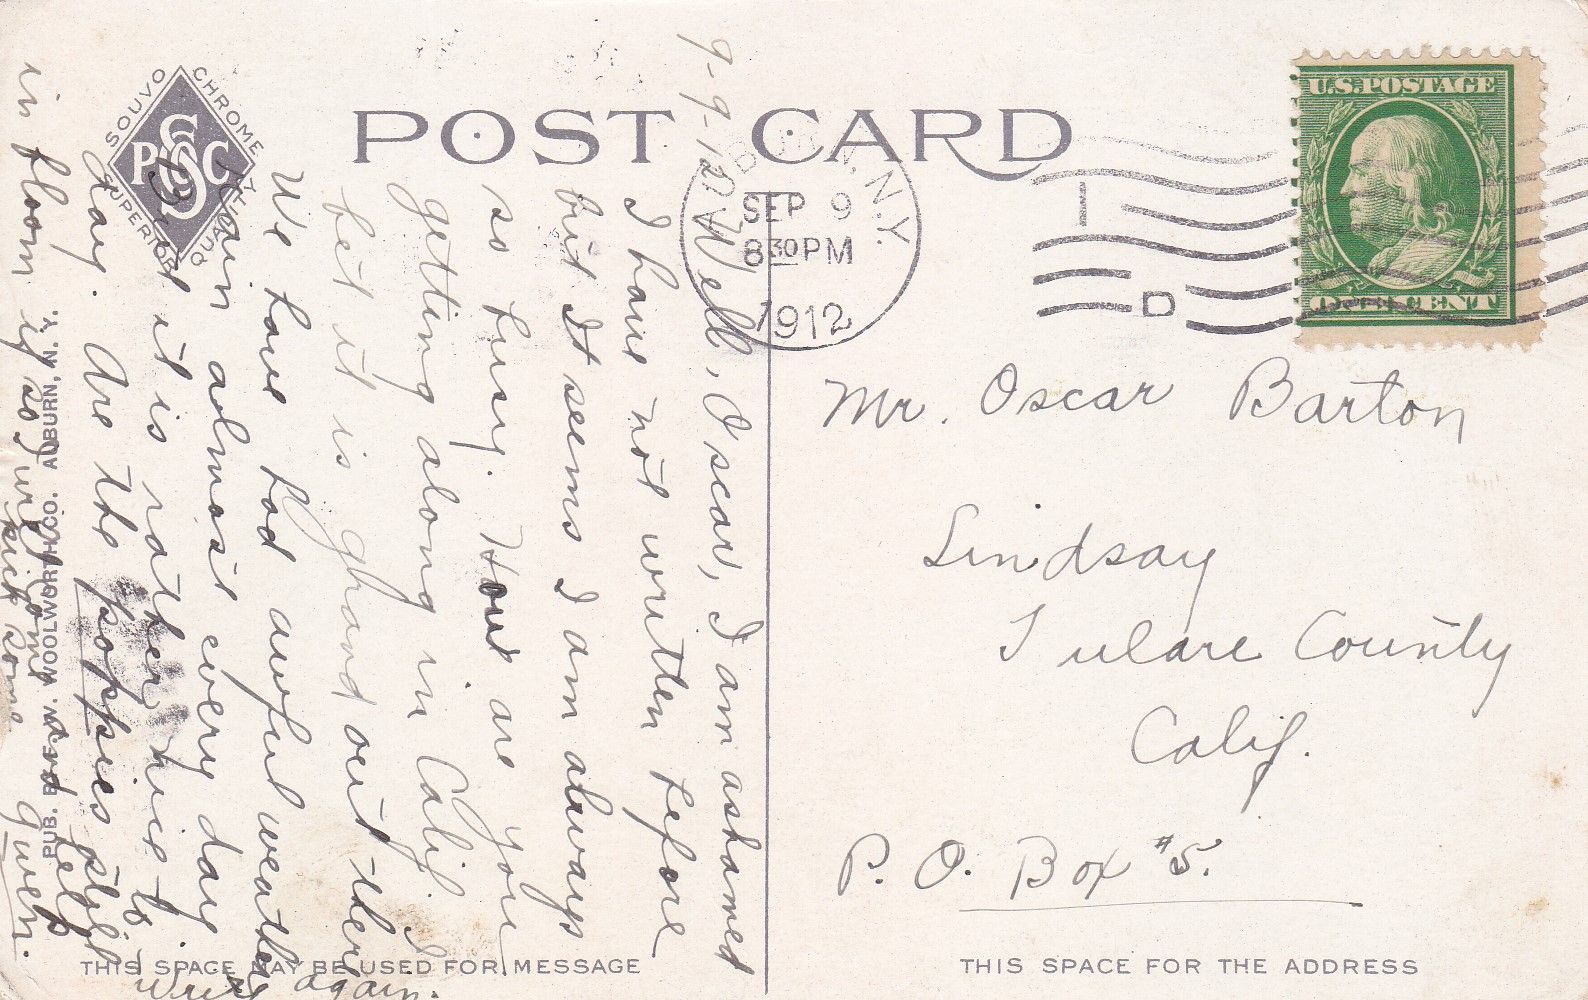 POST CARD
SOUVO CHROME
P S C
SUPERIOR QUALITY
PUB. BY F. W. WOOLWORTH CO. AUBURN, N. Y.
9-9-12
Well, Oscar, I am ashamed
I have not written before
but It seems I am always
so busy. How are you
getting along in Calif. I
bet it is grand out there
We have had awful weather
rain almost every day
But it is rather nice to
day. Are the poppies still
in bloom if so I will come
and help
pick some
Gwen.
write again.
THIS SPACE MAY BE USED FOR MESSAGE
AUBURN, N.Y.
SEP 9
8 30 PM
1912
1
D
U.S. POSTAGE
ONE CENT
Mr. Oscar Barton
Lindsay
Tulare County
Calif.
P. O. Box #5.
THIS SPACE FOR THE ADDRESS